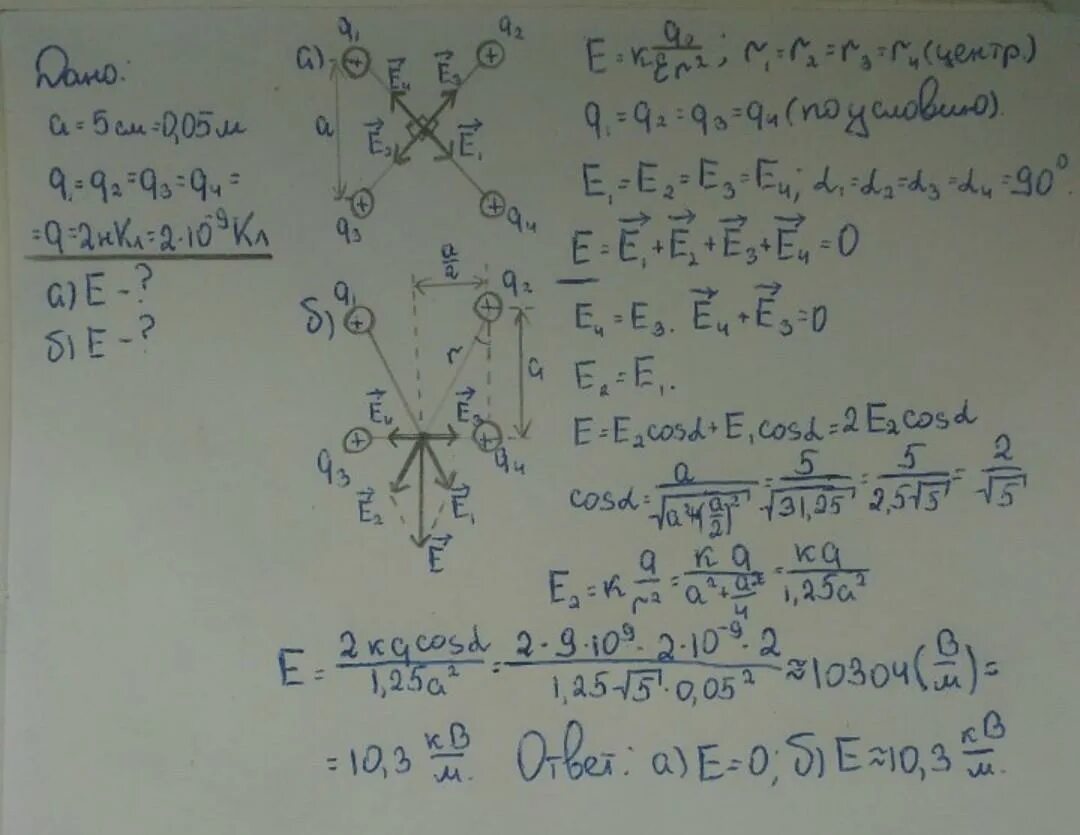 Дано:
a = 5 см = 0,05 м
q₁ = q₂ = q₃ = q₄ =
= q = 2 нКл = 2·10⁻⁹ Кл
а) E - ?
б) E - ?
а)
q₁
q₂
E₄
E₃
a
E₂
E₁
q₃
q₄
б)
q₁
a/2
q₂
r
a
E₄
E₃
q₃
q₄
E₂
E₁
E
E = k q₂/εr²; r₁ = r₂ = r₃ = r₄ (центр.)
q₁ = q₂ = q₃ = q₄ (по условию).
E₁ = E₂ = E₃ = E₄; α₁ = α₂ = α₃ = α₄ = 90°
E = E₁ + E₂ + E₃ + E₄ = 0
E₄ = E₃. E₄ + E₃ = 0
E₂ = E₁.
E = E₂cosα + E₁cosα = 2E₂cosα
cosα = a/√(a²+(a/2)²) = 5/√31,25 = 5/2,5√5 = 2/√5
E₂ = k q/r² = kq/(a² + a²/4) = kq/1,25a²
E = 2kqcosα/1,25a² = 2·9·10⁹·2·10⁻⁹·2/1,25·√5·0,05² ≈ 10304 (В/м) =
= 10,3 кВ/м. Ответ: а) E = 0; б) E ≈ 10,3 кВ/м.